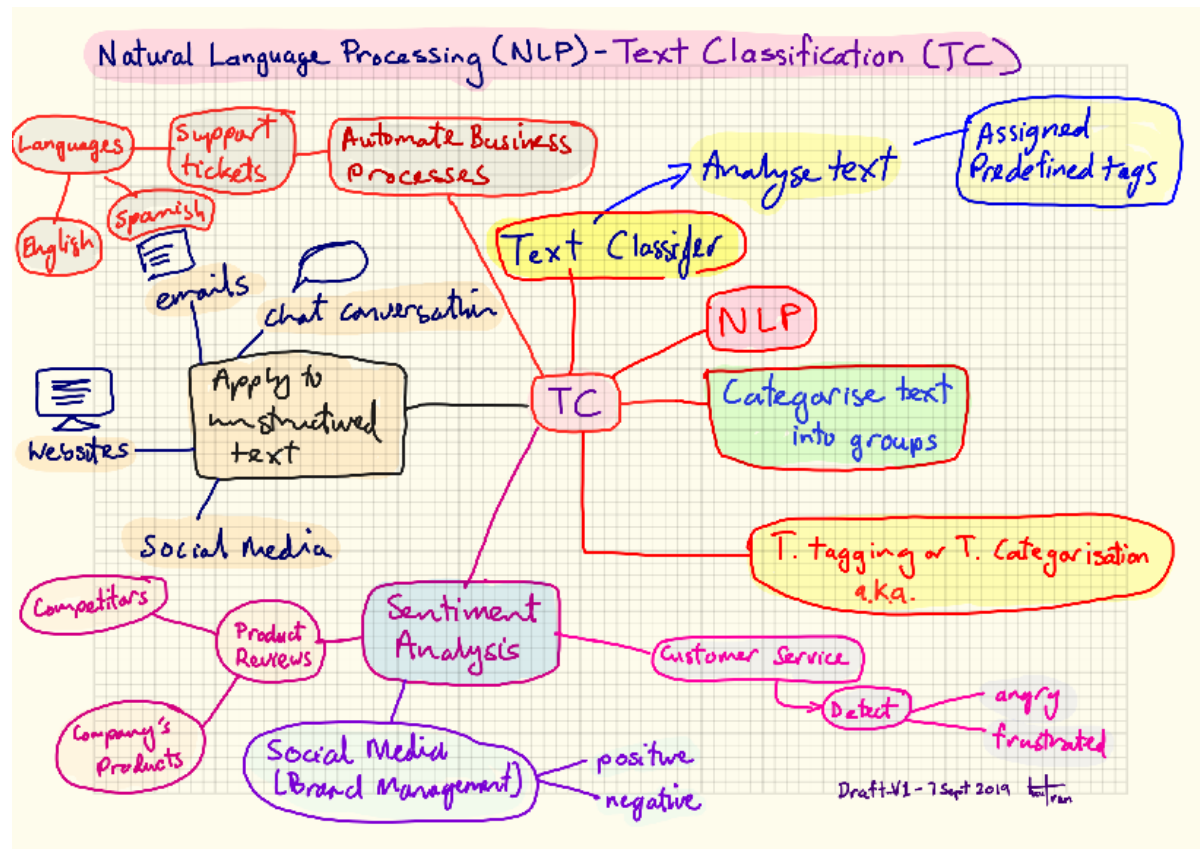 Natural Language Processing (NLP) - Text Classification (TC)
Languages
Support
tickets
Automate Business
Processes
English
Spanish
Analyse text
Assigned
Predefined tags
Text Classifer
emails
chat conversation
NLP
Apply to
unstructured
text
TC
Categorise text
into groups
websites
Social Media
T. tagging or T. Categorisation
a.k.a.
Sentiment
Analysis
Competitors
Product
Reviews
Company's
Products
Customer Service
Detect
angry
frustrated
Social Media
(Brand Management)
positive
negative
Draft-V1 - 7 Sept 2019